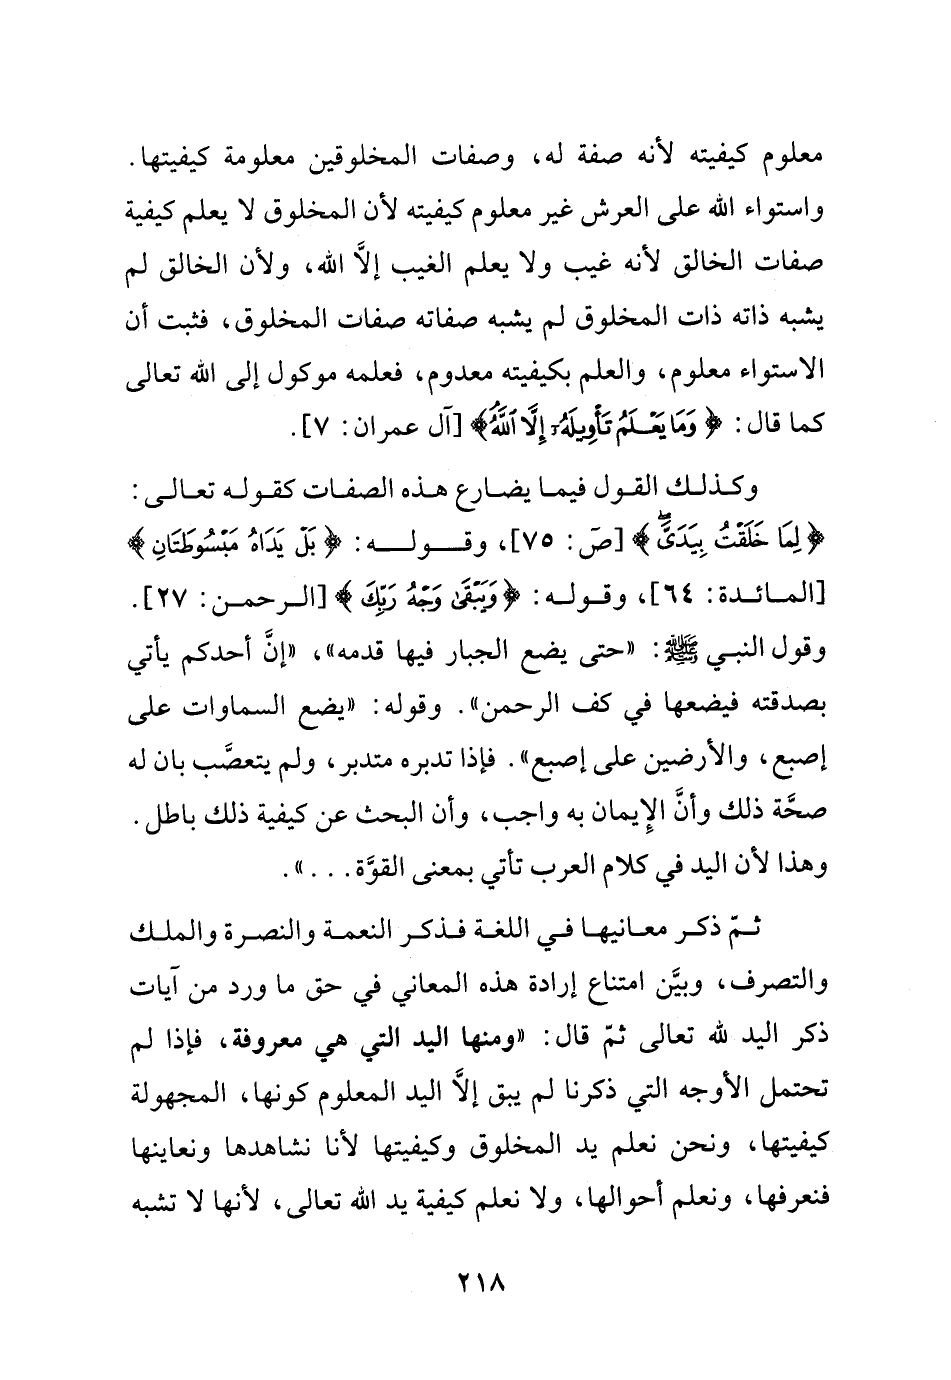 معلوم كيفيته لأنه صفة له، وصفات المخلوقين معلومة كيفيتها.
واستواء الله على العرش غير معلوم كيفيته لأن المخلوق لا يعلم كيفية
صفات الخالق لأنه غيب ولا يعلم الغيب إلاَّ الله، ولأن الخالق لم
يشبه ذاته ذات المخلوق لم يشبه صفاته صفات المخلوق، فثبت أن
الاستواء معلوم، والعلم بكيفيته معدوم، فعلمه موكول إلى الله تعالى
كما قال: ﴿ وَمَا يَعْلَمُ تَأْوِيلَهُۥٓ إِلَّا ٱللَّهُ﴾ [آل عمران: ٧].
وكذلك القول فيما يضارع هذه الصفات كقوله تعالى:
﴿ لِمَا خَلَقْتُ بِيَدَىَّۖ ﴾ [صَ: ٧٥]، وقوله: ﴿ بَلْ يَدَاهُ مَبْسُوطَتَانِ ﴾
[المائدة: ٦٤]، وقوله: ﴿ وَيَبْقَىٰ وَجْهُ رَبِّكَ ﴾ [الرحمن: ٢٧].
وقول النبي ﷺ: «حتى يضع الجبار فيها قدمه»، «إنَّ أحدكم يأتي
بصدقته فيضعها في كف الرحمن». وقوله: «يضع السماوات على
إصبع، والأرضين على إصبع». فإذا تدبره متدبر، ولم يتعصَّب بان له
صحَّة ذلك وأنَّ الإِيمان به واجب، وأن البحث عن كيفية ذلك باطل.
وهذا لأن اليد في كلام العرب تأتي بمعنى القوَّة. . .».
ثمّ ذكر معانيها في اللغة فذكر النعمة والنصرة والملك
والتصرف، وبيَّن امتناع إرادة هذه المعاني في حق ما ورد من آيات
ذكر اليد لله تعالى ثمّ قال: «ومنها اليد التي هي معروفة، فإذا لم
تحتمل الأوجه التي ذكرنا لم يبق إلاَّ اليد المعلوم كونها، المجهولة
كيفيتها، ونحن نعلم يد المخلوق وكيفيتها لأنا نشاهدها ونعاينها
فنعرفها، ونعلم أحوالها، ولا نعلم كيفية يد الله تعالى، لأنها لا تشبه
٢١٨